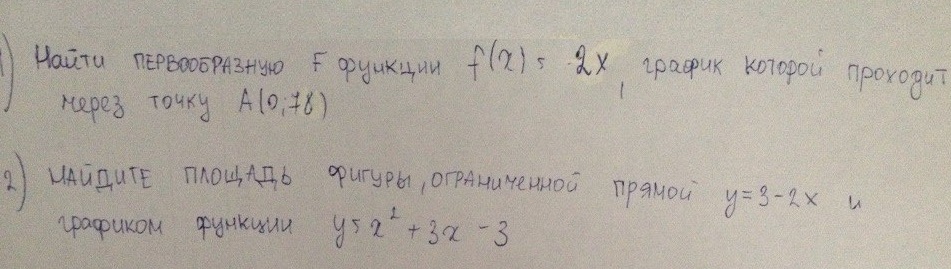 1) Найти ПЕРВООБРАЗНУЮ F функции f(x) = 2x, график которой проходит
через точку A(0;78)
2) НАЙДИТЕ ПЛОЩАДЬ ФИГУРЫ, ОГРАНИЧЕННОЙ прямой y=3-2x и
графиком функции y=x²+3x-3